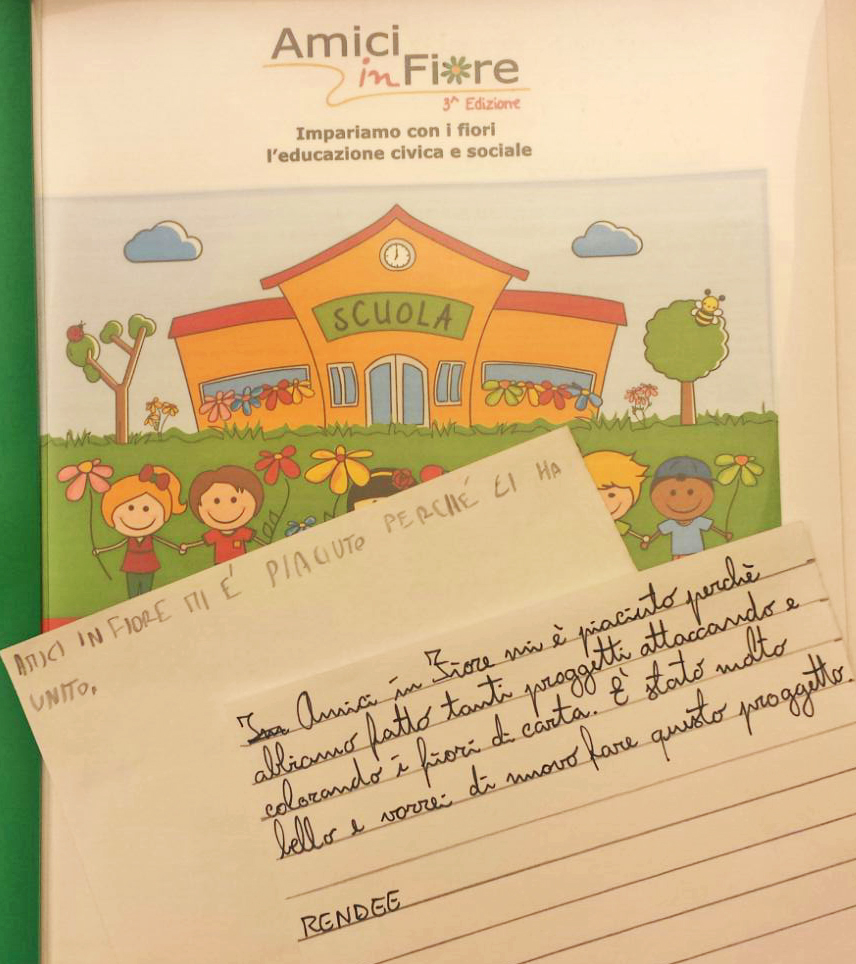 Amici
in Fiore
3^ Edizione
Impariamo con i fiori
l'educazione civica e sociale
SCUOLA
AMICI IN FIORE MI É PIACIUTO PERCHÉ CI HA
UNITO.
In Amici in Fiore mi è piaciuto perchè
abbiamo fatto tanti proggetti attaccando e
colorando i fiori di carta. È stato molto
bello e vorrei di nuovo fare questo proggetto.
RENDEE